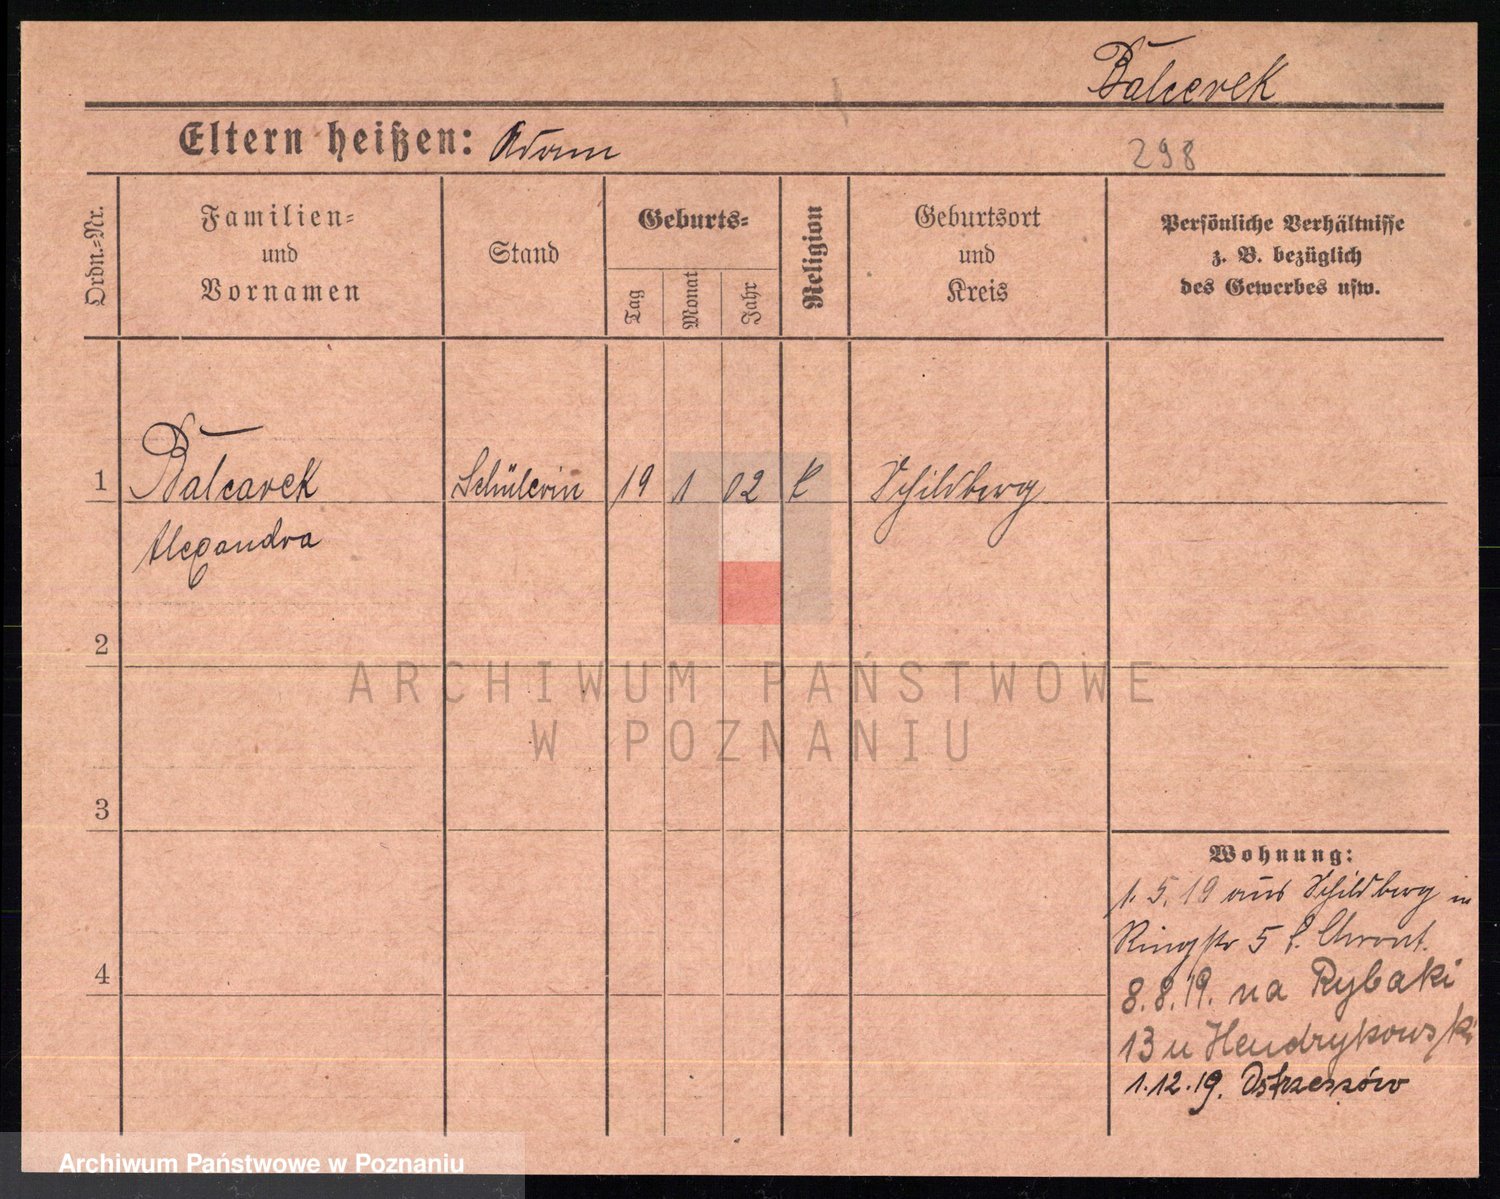 Balcerek
Eltern heißen: Adam
298
Ordn.=Nr.
Familien=
und
Vornamen
Stand
Geburts=
Tag
Monat
Jahr
Religion
Geburtsort
und
Kreis
Persönliche Verhältnisse
z. B. bezüglich
des Gewerbes usw.
1 Balcarek Schülerin 19 1 02 k Schildberg
Alexandra
2
ARCHIWUM PAŃSTWOWE
W POZNANIU
3
Wohnung:
1. 5. 19 aus Schildberg in
Ringstr 5
4
8.8.19. na Rybaki
13 u Hendrykowski
1.12.19. Ostrzeszów
Archiwum Państwowe w Poznaniu